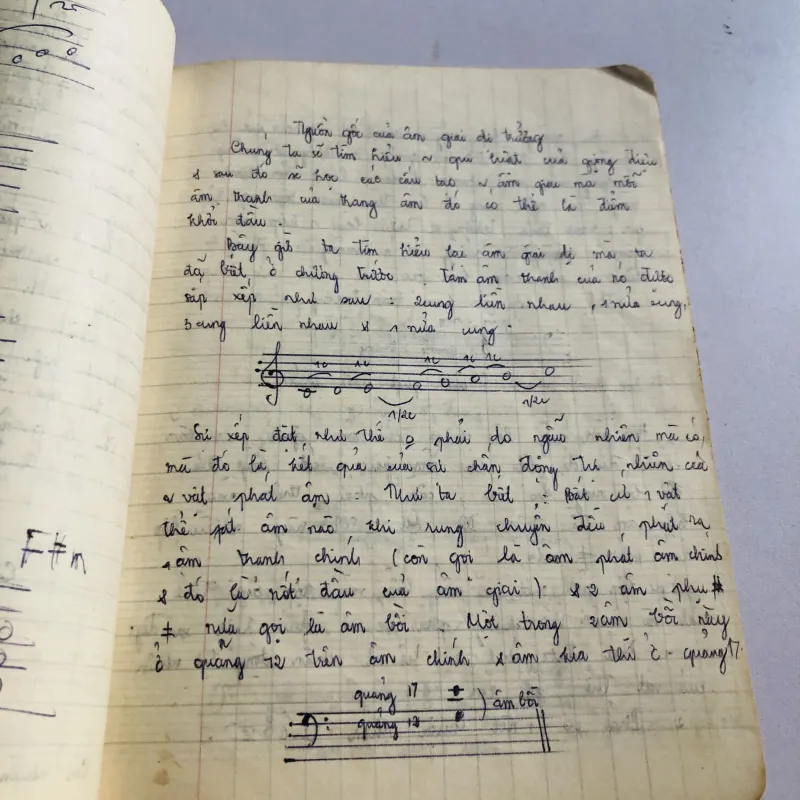 Nguồn gốc của âm giai dị trưởng
Chúng ta sẽ tìm hiểu ~ qui luật của giọng điệu
& sau đó sẽ học các cấu tạo ~ âm giai mà mỗi
âm thanh của thang âm đó có thể là điểm
khởi đầu.
Bây giờ ta tìm hiểu lại âm giai dị mà ta
đã biết ở chương trước. Tám âm thanh của nó được
sắp xếp như sau: 2 cung liền nhau, 1 nửa cung,
3 cung liền nhau & 1 nửa cung.
1c 1c 1c 1c 1c
1/2c 1/2c
Sự xếp đặt như thế o phải do ngẫu nhiên mà có,
mà đó là kết quả của sự chấn động tự nhiên của
~ vật phát âm. Như ta biết: Bất cứ 1 vật
thể phát âm nào khi rung chuyển đều phát ra
1 âm thanh chính (còn gọi là âm phát âm chính
& đó là nốt đầu của âm giai) & 2 âm phụ #
# nữa gọi là âm bồi. Một trong 2 âm bồi này
ở quãng 12 trên âm chính & âm kia thì ở quãng 17.
quảng 17 ) âm bồi
quảng 12
F#m